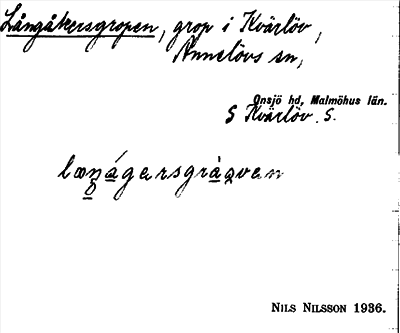 Långåkersgropen, grop i Kvärlöv,
Annelövs sn,
Onsjö hd, Malmöhus län.
S Kvärlöv. S.
NILS NILSSON 1936.